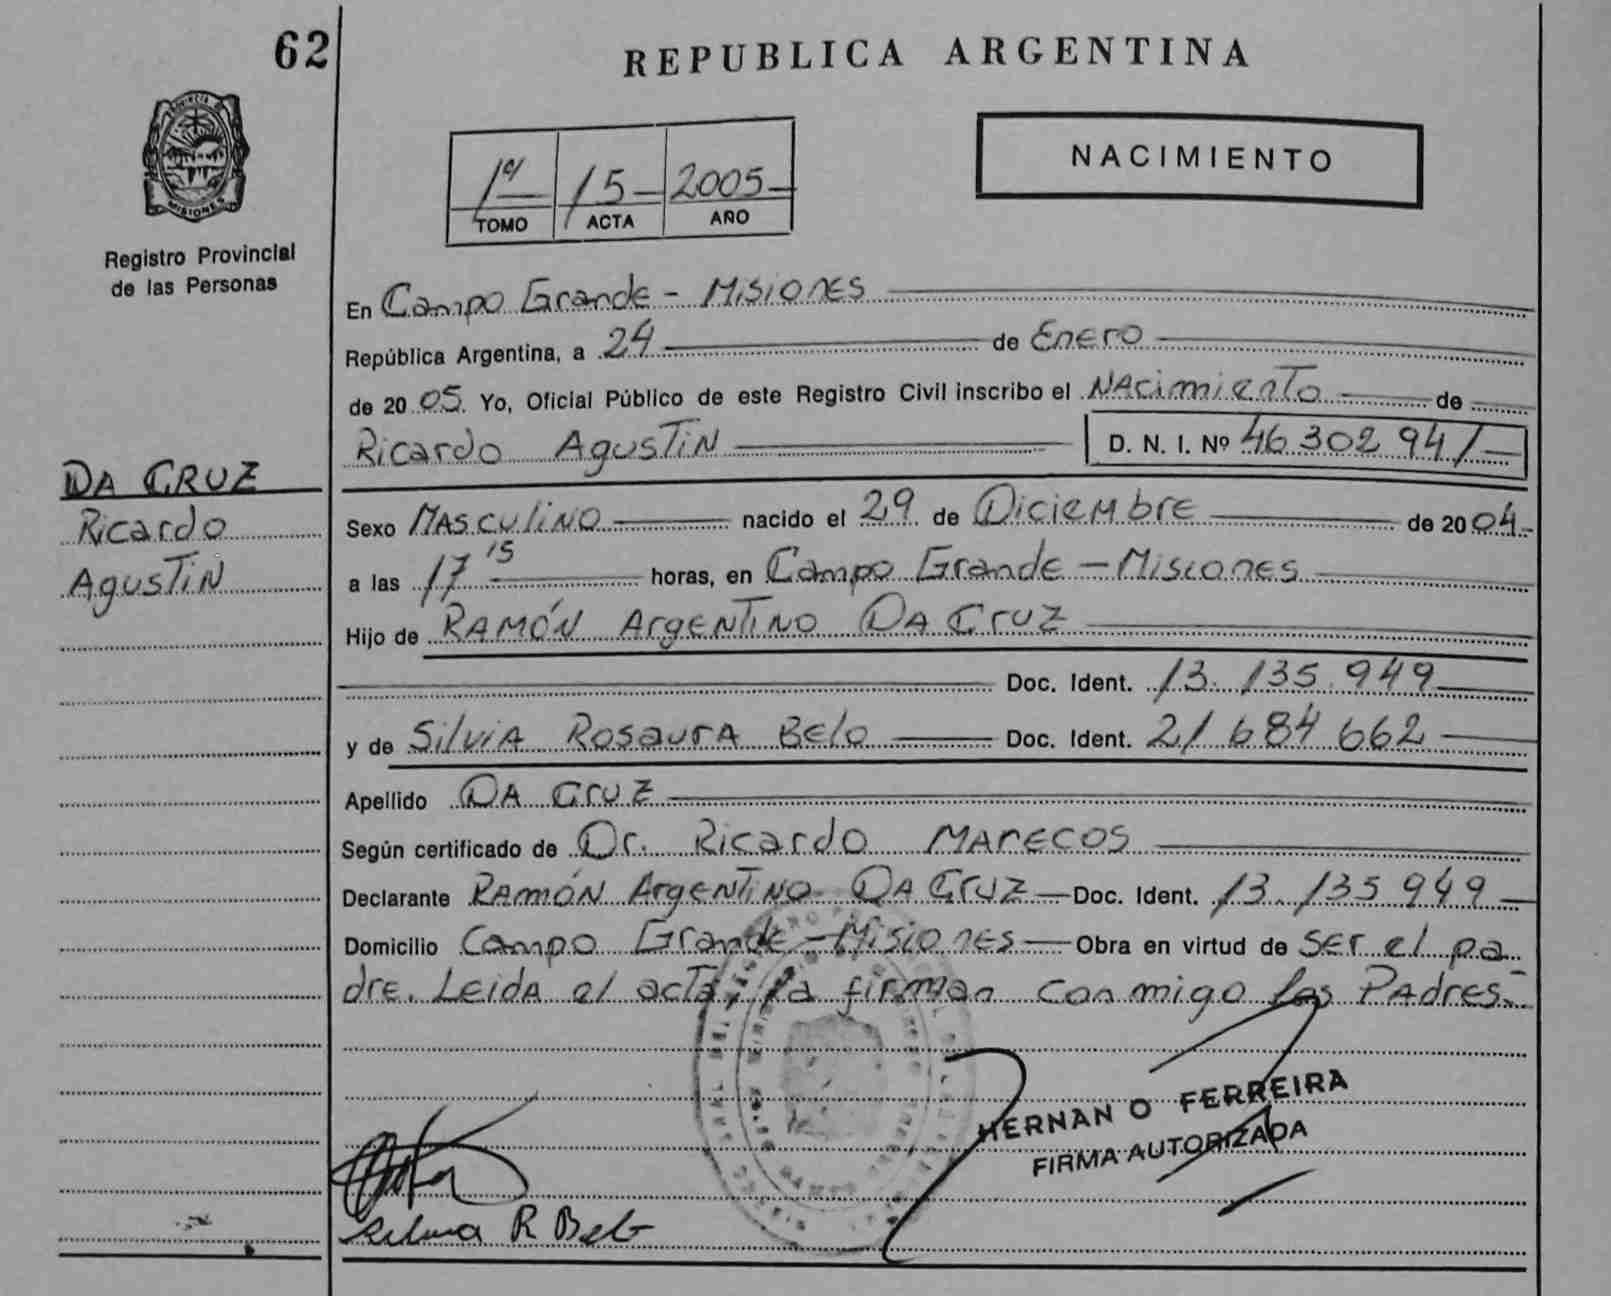 62
REPUBLICA ARGENTINA
PROVINCIA DE
MISIONES
Registro Provincial
de las Personas
1º 15 2005
TOMO ACTA AÑO
NACIMIENTO
En Campo Grande - Misiones
República Argentina, a 24 de Enero
de 2005. Yo, Oficial Público de este Registro Civil inscribo el NAcimiento de
Ricardo Agustin D. N. I. Nº 46 302 941
DA CRUZ
Ricardo
Agustin
Sexo Masculino nacido el 29 de Diciembre de 2004
a las 17 15 horas, en Campo Grande - Misiones
Hijo de RAMÓN Argentino DA Cruz
Doc. Ident. 13.135.949
y de Silvia Rosaura Belo Doc. Ident. 21 684 662
Apellido DA Cruz
Según certificado de Dr. Ricardo MARECOS
Declarante RAMÓN Argentino DA Cruz Doc. Ident. 13.135 949
Domicilio Campo Grande - Misiones Obra en virtud de ser el pa
dre. Leida el acta, la firman conmigo los Padres.
HERNAN O FERREIRA
FIRMA AUTORIZADA
Silvia R Belo